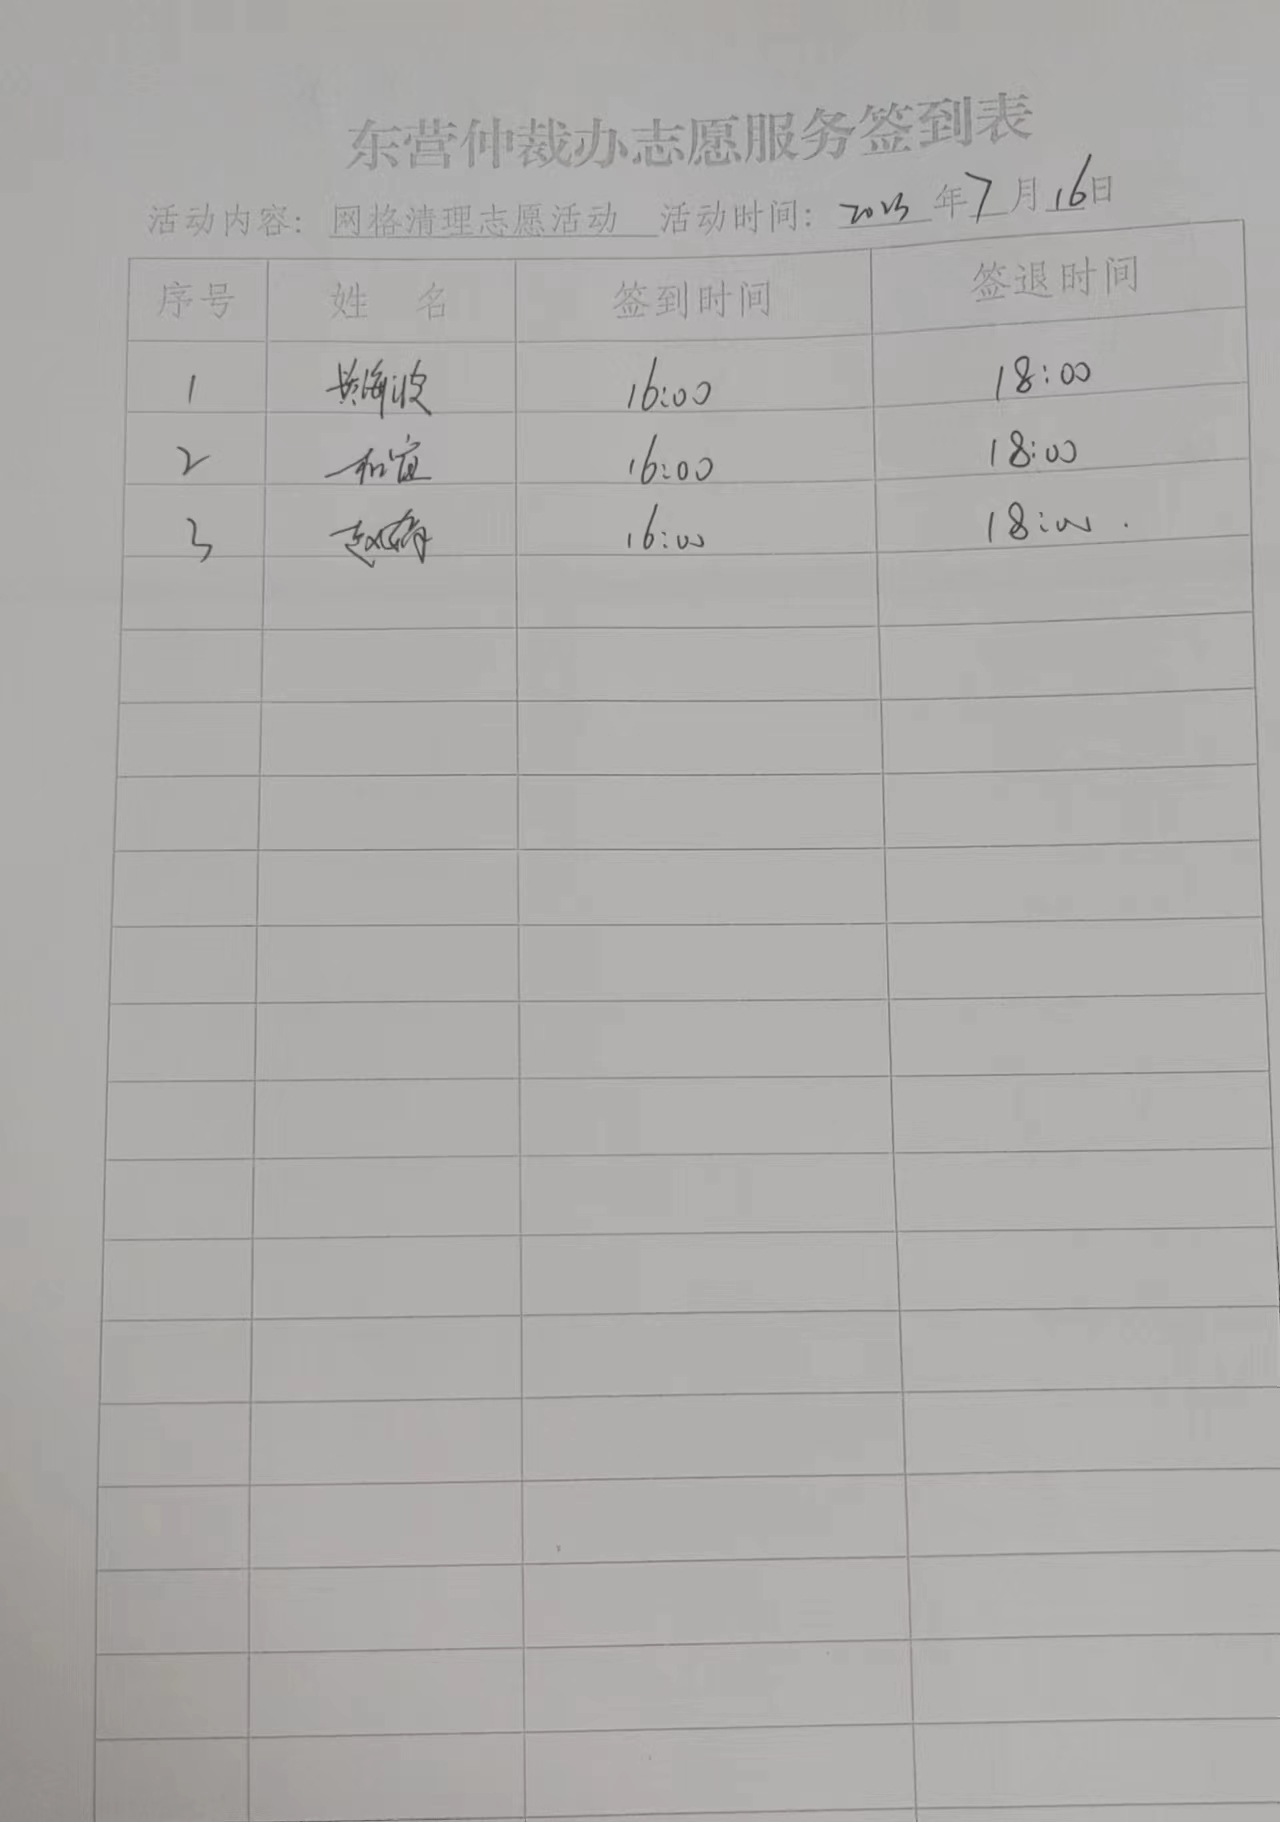 东营仲裁办志愿服务签到表
活动内容: 网格清理志愿活动 活动时间: 2023年7月16日
序号 姓 名 签到时间 签退时间
1 黄海波 16:00 18:00
2 和宜 16:00 18:00
3 16:00 18:00.